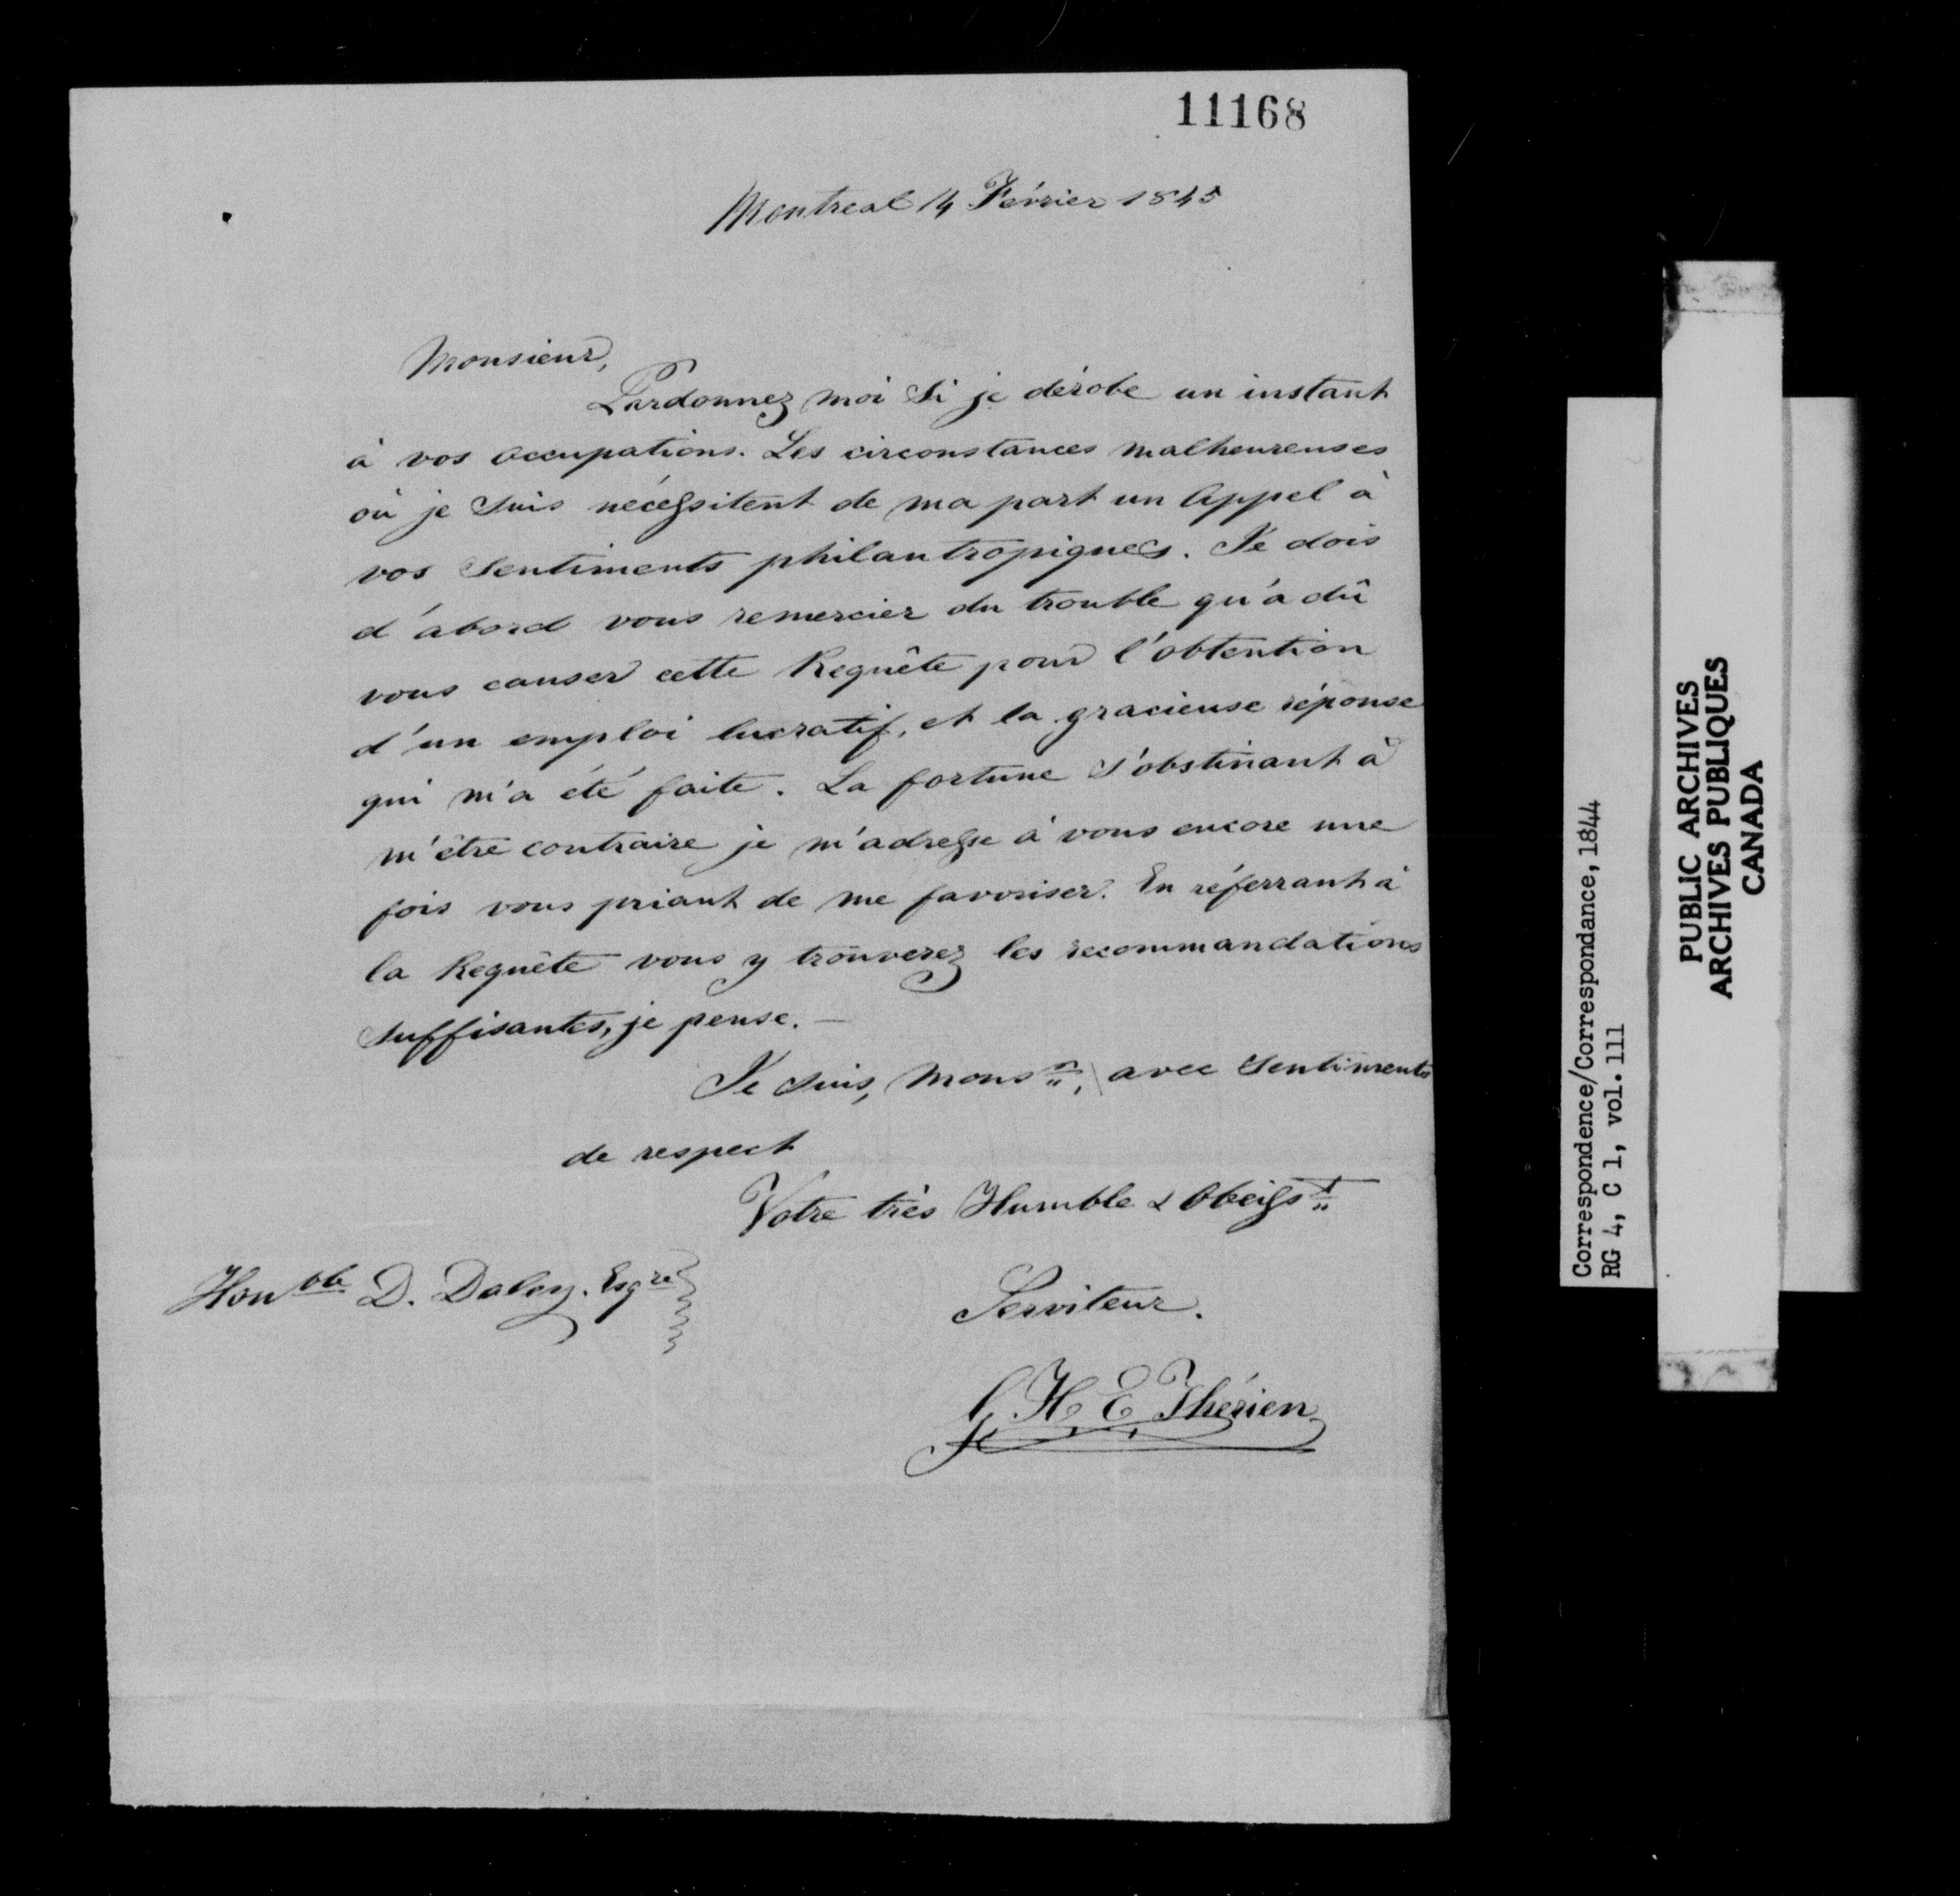 11168
Montreal 14 Février 1845
Monsieur,
Pardonnez moi Si je dérobe un instant
à vos occupations. Les circonstances malheureuses
où je Suis nécessitent de ma part un Appel à
vos Sentiments philantropiques. Je dois
d'abord vous remercier du trouble qu'a dû
vous causer cette Requête pour l'obtention
d'un emploi lucratif, et la gracieuse réponse
qui m'a été faite. La fortune S'obstinant à
m'être contraire je m'adresse à vous encore une
fois vous priant de me favoriser. En réferrant à
la Requête vous y trouverez les recommandations
Suffisantes, je pense. —
Je Suis, Monsr, avec Sentiments
de respect
Votre très Humble & Obeisst
Serviteur.
Honble D. Daley. Esqre
G. H. E. Thérien
Correspondence/Correspondance, 1844
RG 4, C 1, vol. 111
PUBLIC ARCHIVES
ARCHIVES PUBLIQUES
CANADA